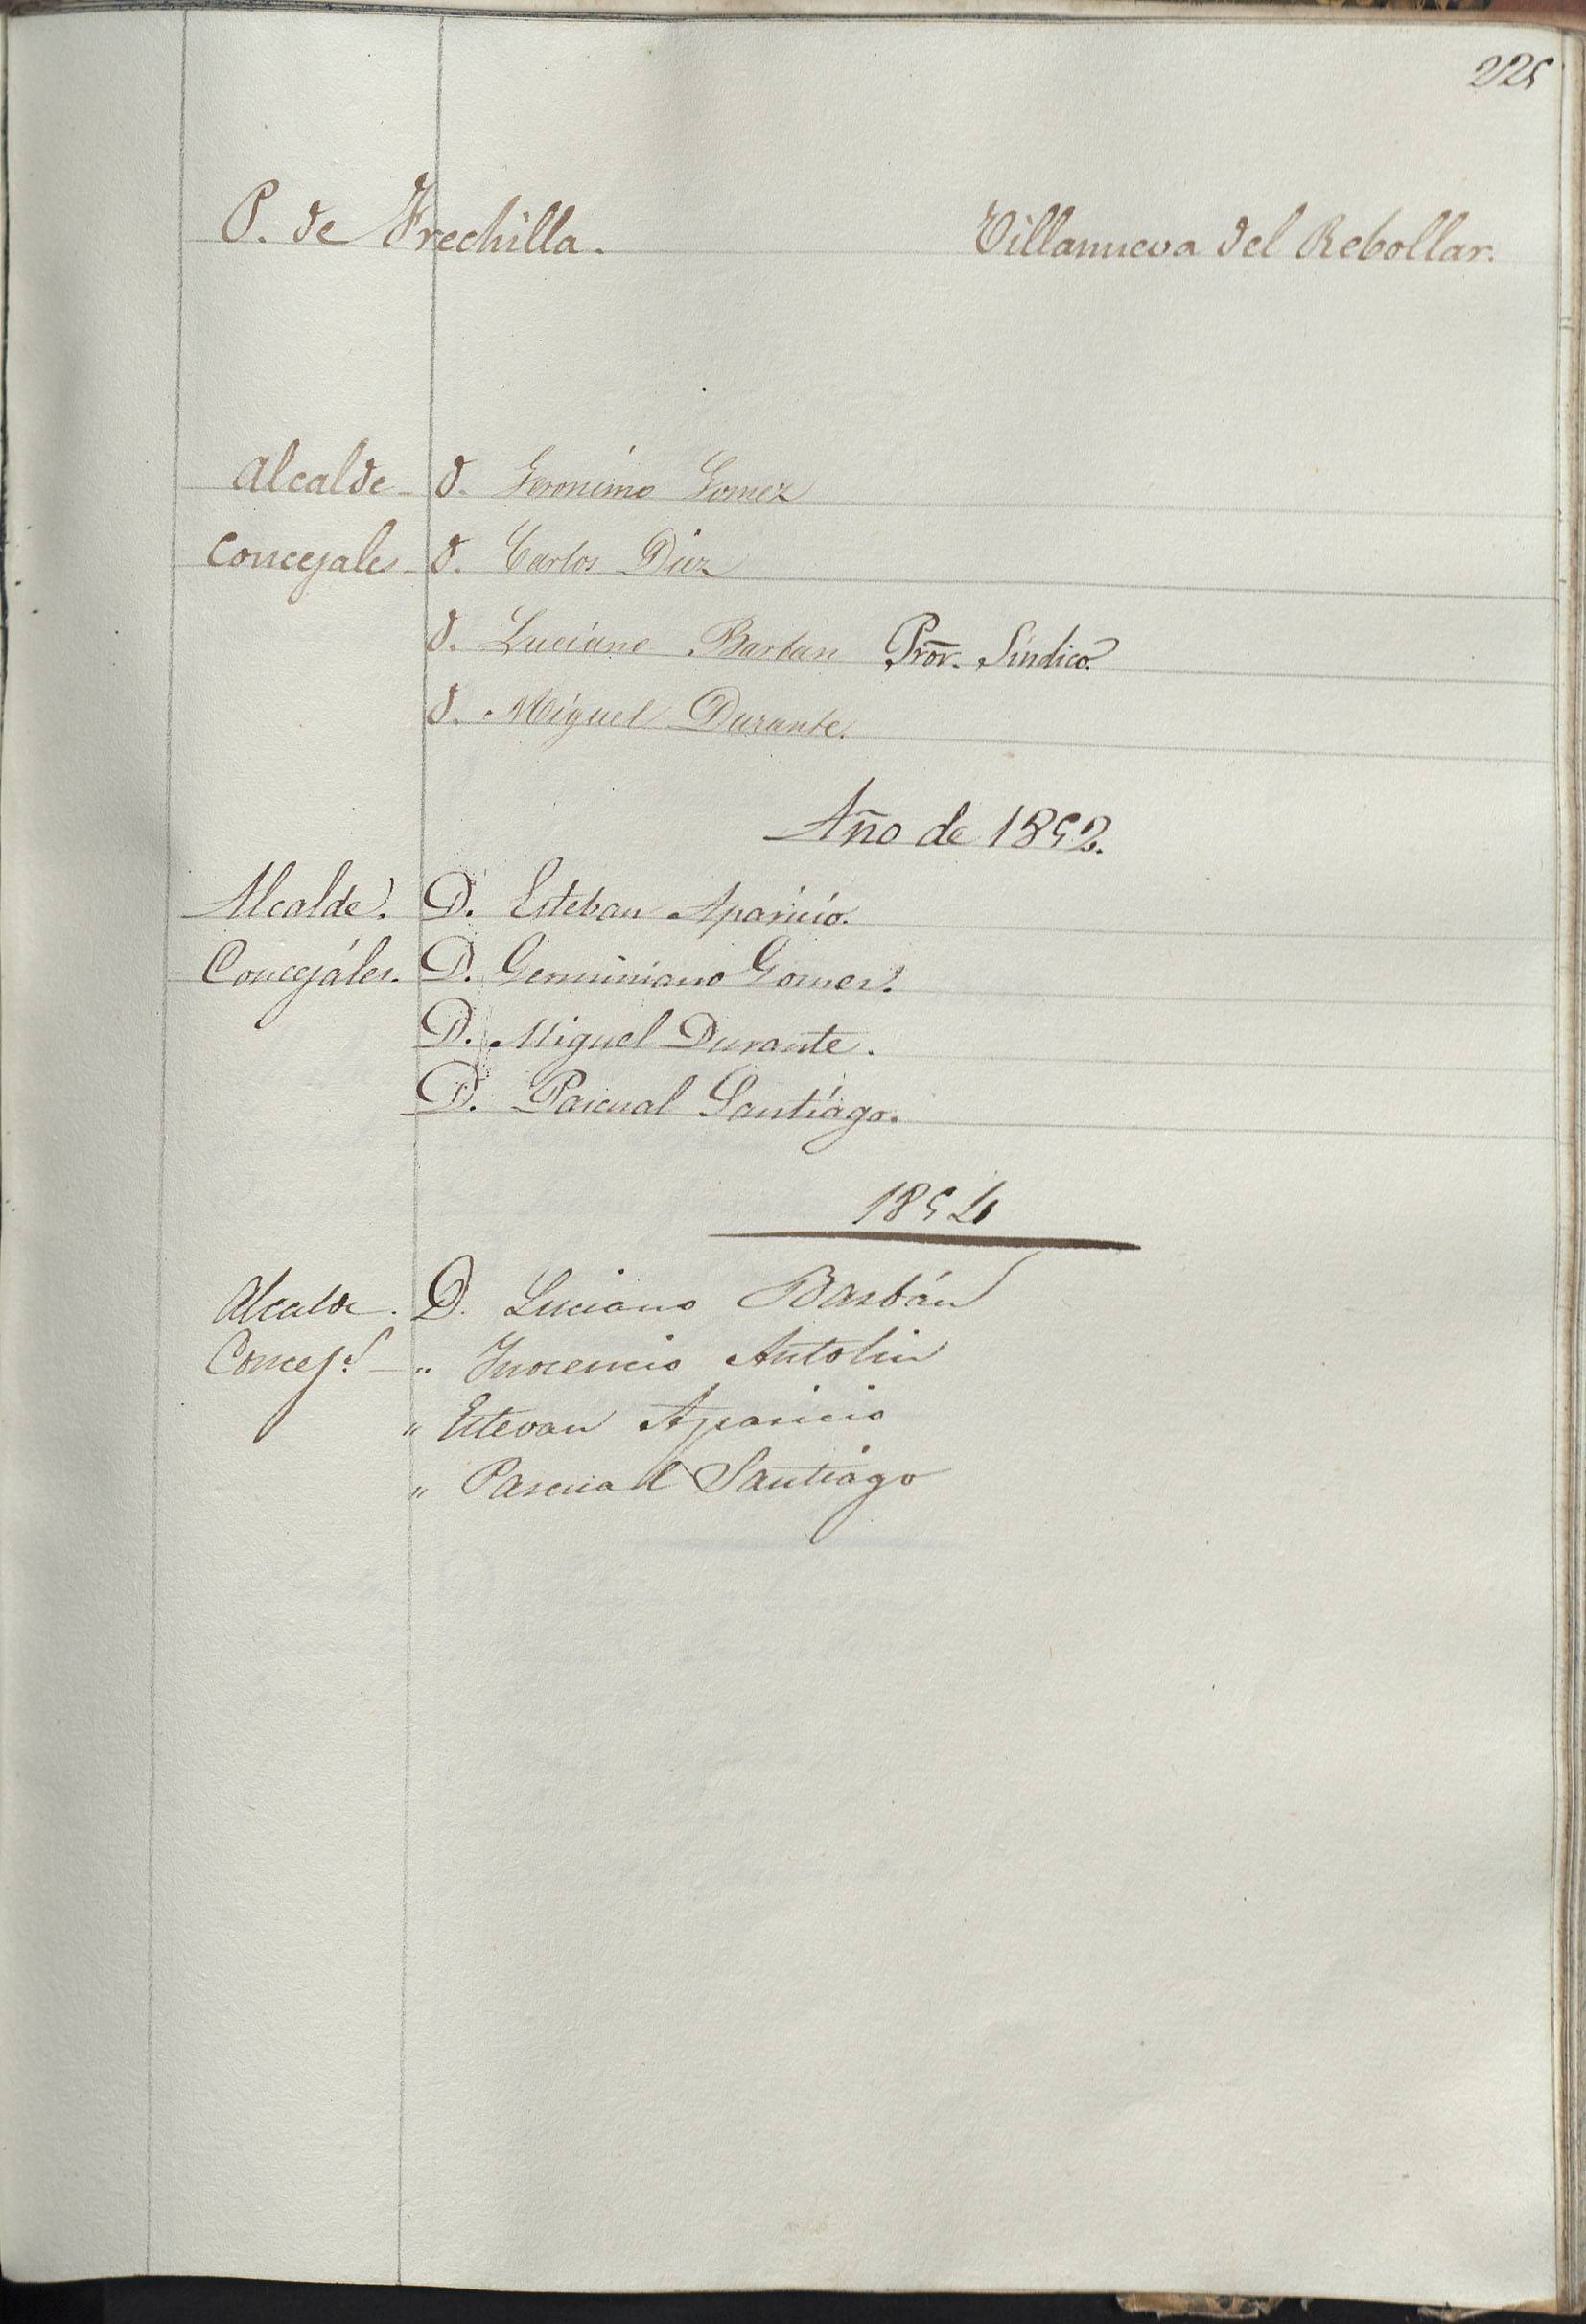 225
P. de Frechilla. Villanueva del Rebollar.
Alcalde - D. Geronimo Gomez
Concejales - D. Carlos Diez
D. Luciano Barban Pror. Síndico.
D. Miguel Durante.
Año de 1852.
Alcalde. D. Esteban Aparicio.
Concejáles. D. Geminiano Gomez.
D. Miguel Durante.
D. Pascual Santiago.
1854
Alcalde. D. Luciano Barbán
Concejs. - " Inocencio Antolin
" Estevan Aparicio
" Pascual Santiago